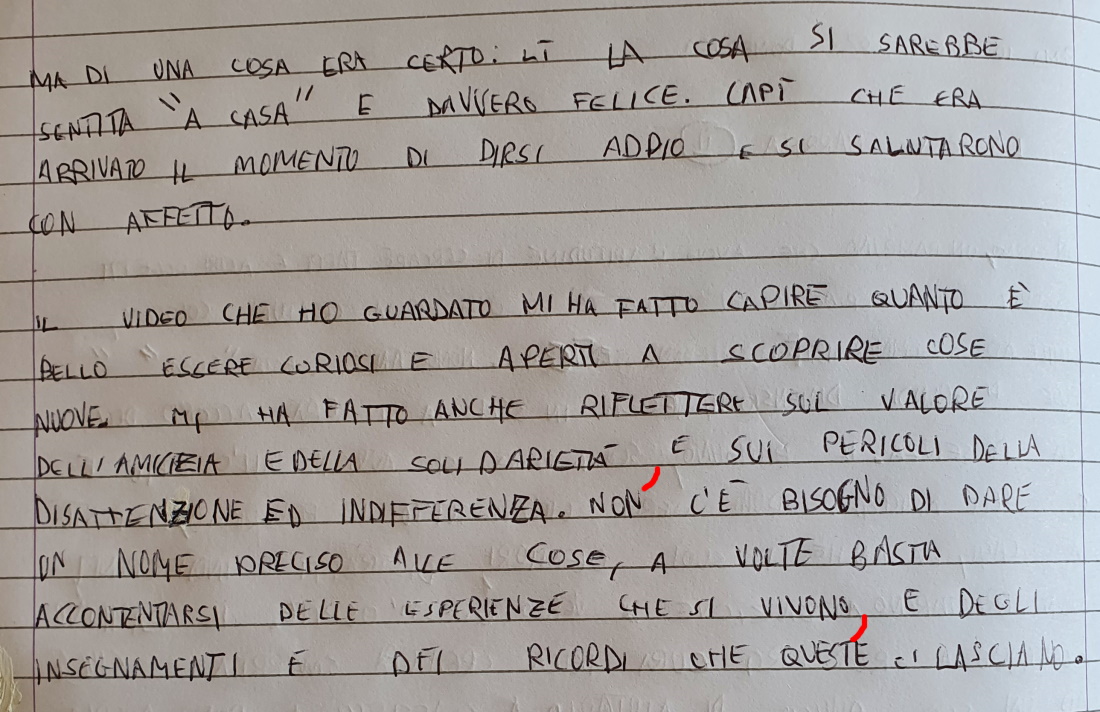 MA DI UNA COSA ERA CERTO: LÌ LA COSA SI SAREBBE
SENTITA "A CASA" E DAVVERO FELICE. CAPÌ CHE ERA
ARRIVATO IL MOMENTO DI DIRSI ADDIO E SI SALUTARONO
CON AFFETTO.
IL VIDEO CHE HO GUARDATO MI HA FATTO CAPIRE QUANTO È
BELLO ESSERE CURIOSI E APERTI A SCOPRIRE COSE
NUOVE. MI HA FATTO ANCHE RIFLETTERE SUL VALORE
DELL'AMICIZIA E DELLA SOLIDARIETÀ, E SUI PERICOLI DELLA
DISATTENZIONE ED INDIFFERENZA. NON C'È BISOGNO DI DARE
UN NOME PRECISO ALLE COSE, A VOLTE BASTA
ACCONTENTARSI DELLE ESPERIENZE CHE SI VIVONO, E DEGLI
INSEGNAMENTI E DEI RICORDI CHE QUESTE CI LASCIANO.